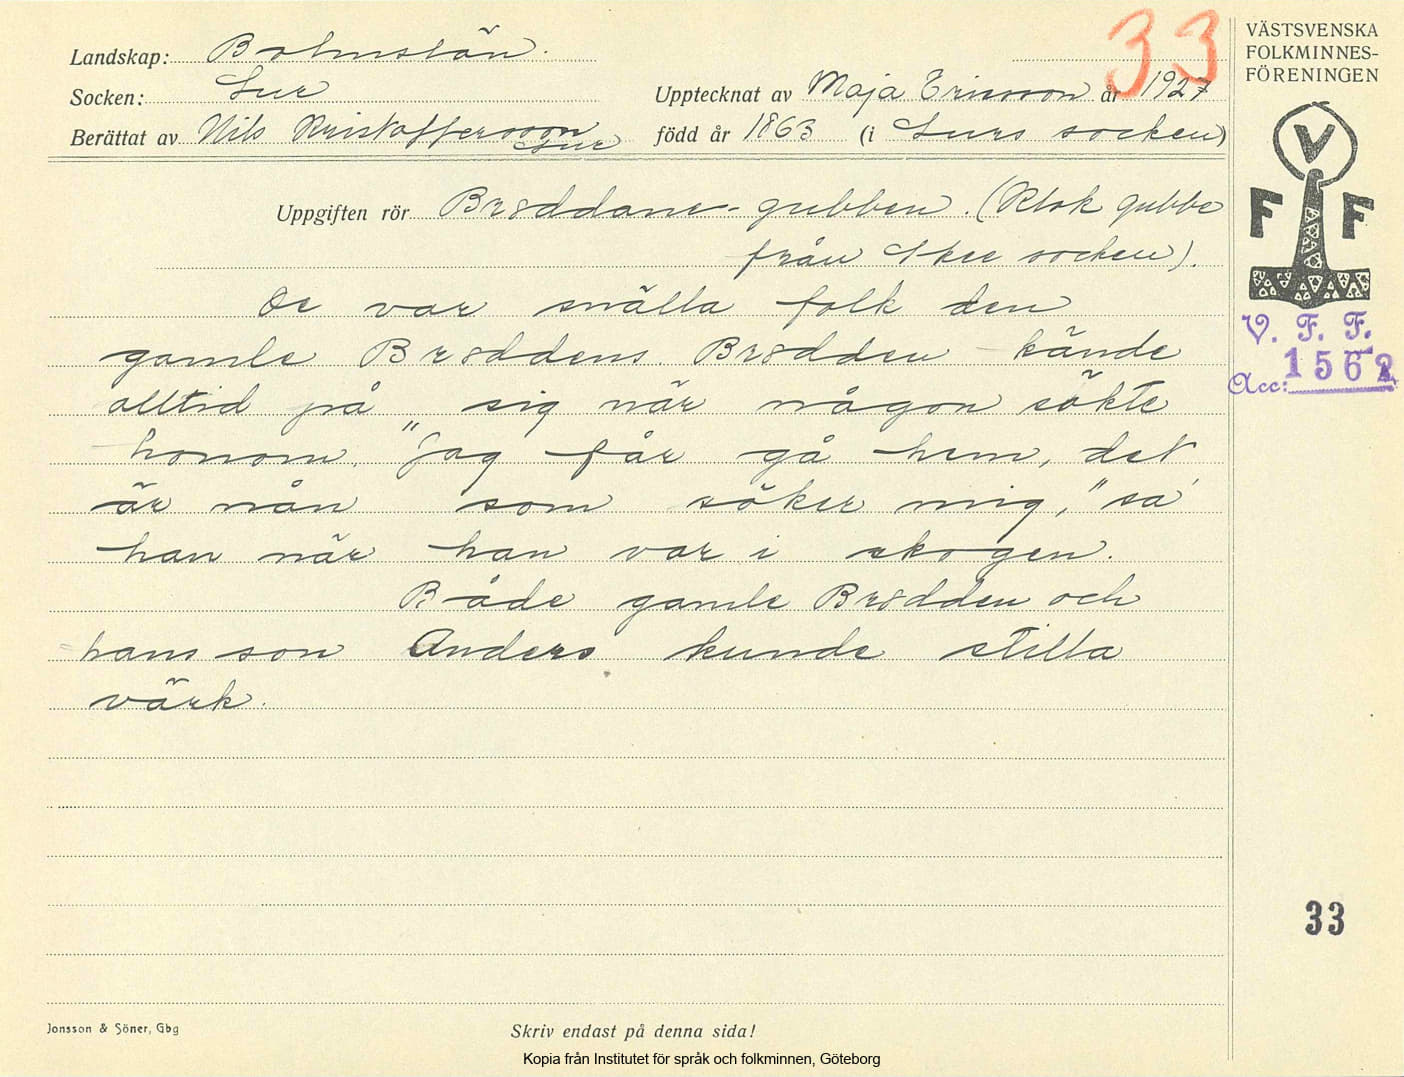 33
VÄSTSVENSKA
FOLKMINNES-
FÖRENINGEN
Landskap: Bohuslän.
Socken: Lur
Upptecknat av Maja Ericsson år 1927
Berättat av Nils Kristoffersson Lur född år 1863 (i Lurs socken)
Uppgiften rör Bröddane-gubben. (Klok gubbe
från Skee socken).
De var snälla folk den
gamle Bröddens. Brödden kände
alltid på sig när någon sökte
honom. "Jag får gå hem, det
är nån som söker mig," sa'
han när han var i skogen.
Både gamle Brödden och
hans son Anders kunde stilla
värk.
V
F F
V. F. F.
Acc: 1562
33
Jonsson & Söner, Gbg
Skriv endast på denna sida!
Kopia från Institutet för språk och folkminnen, Göteborg